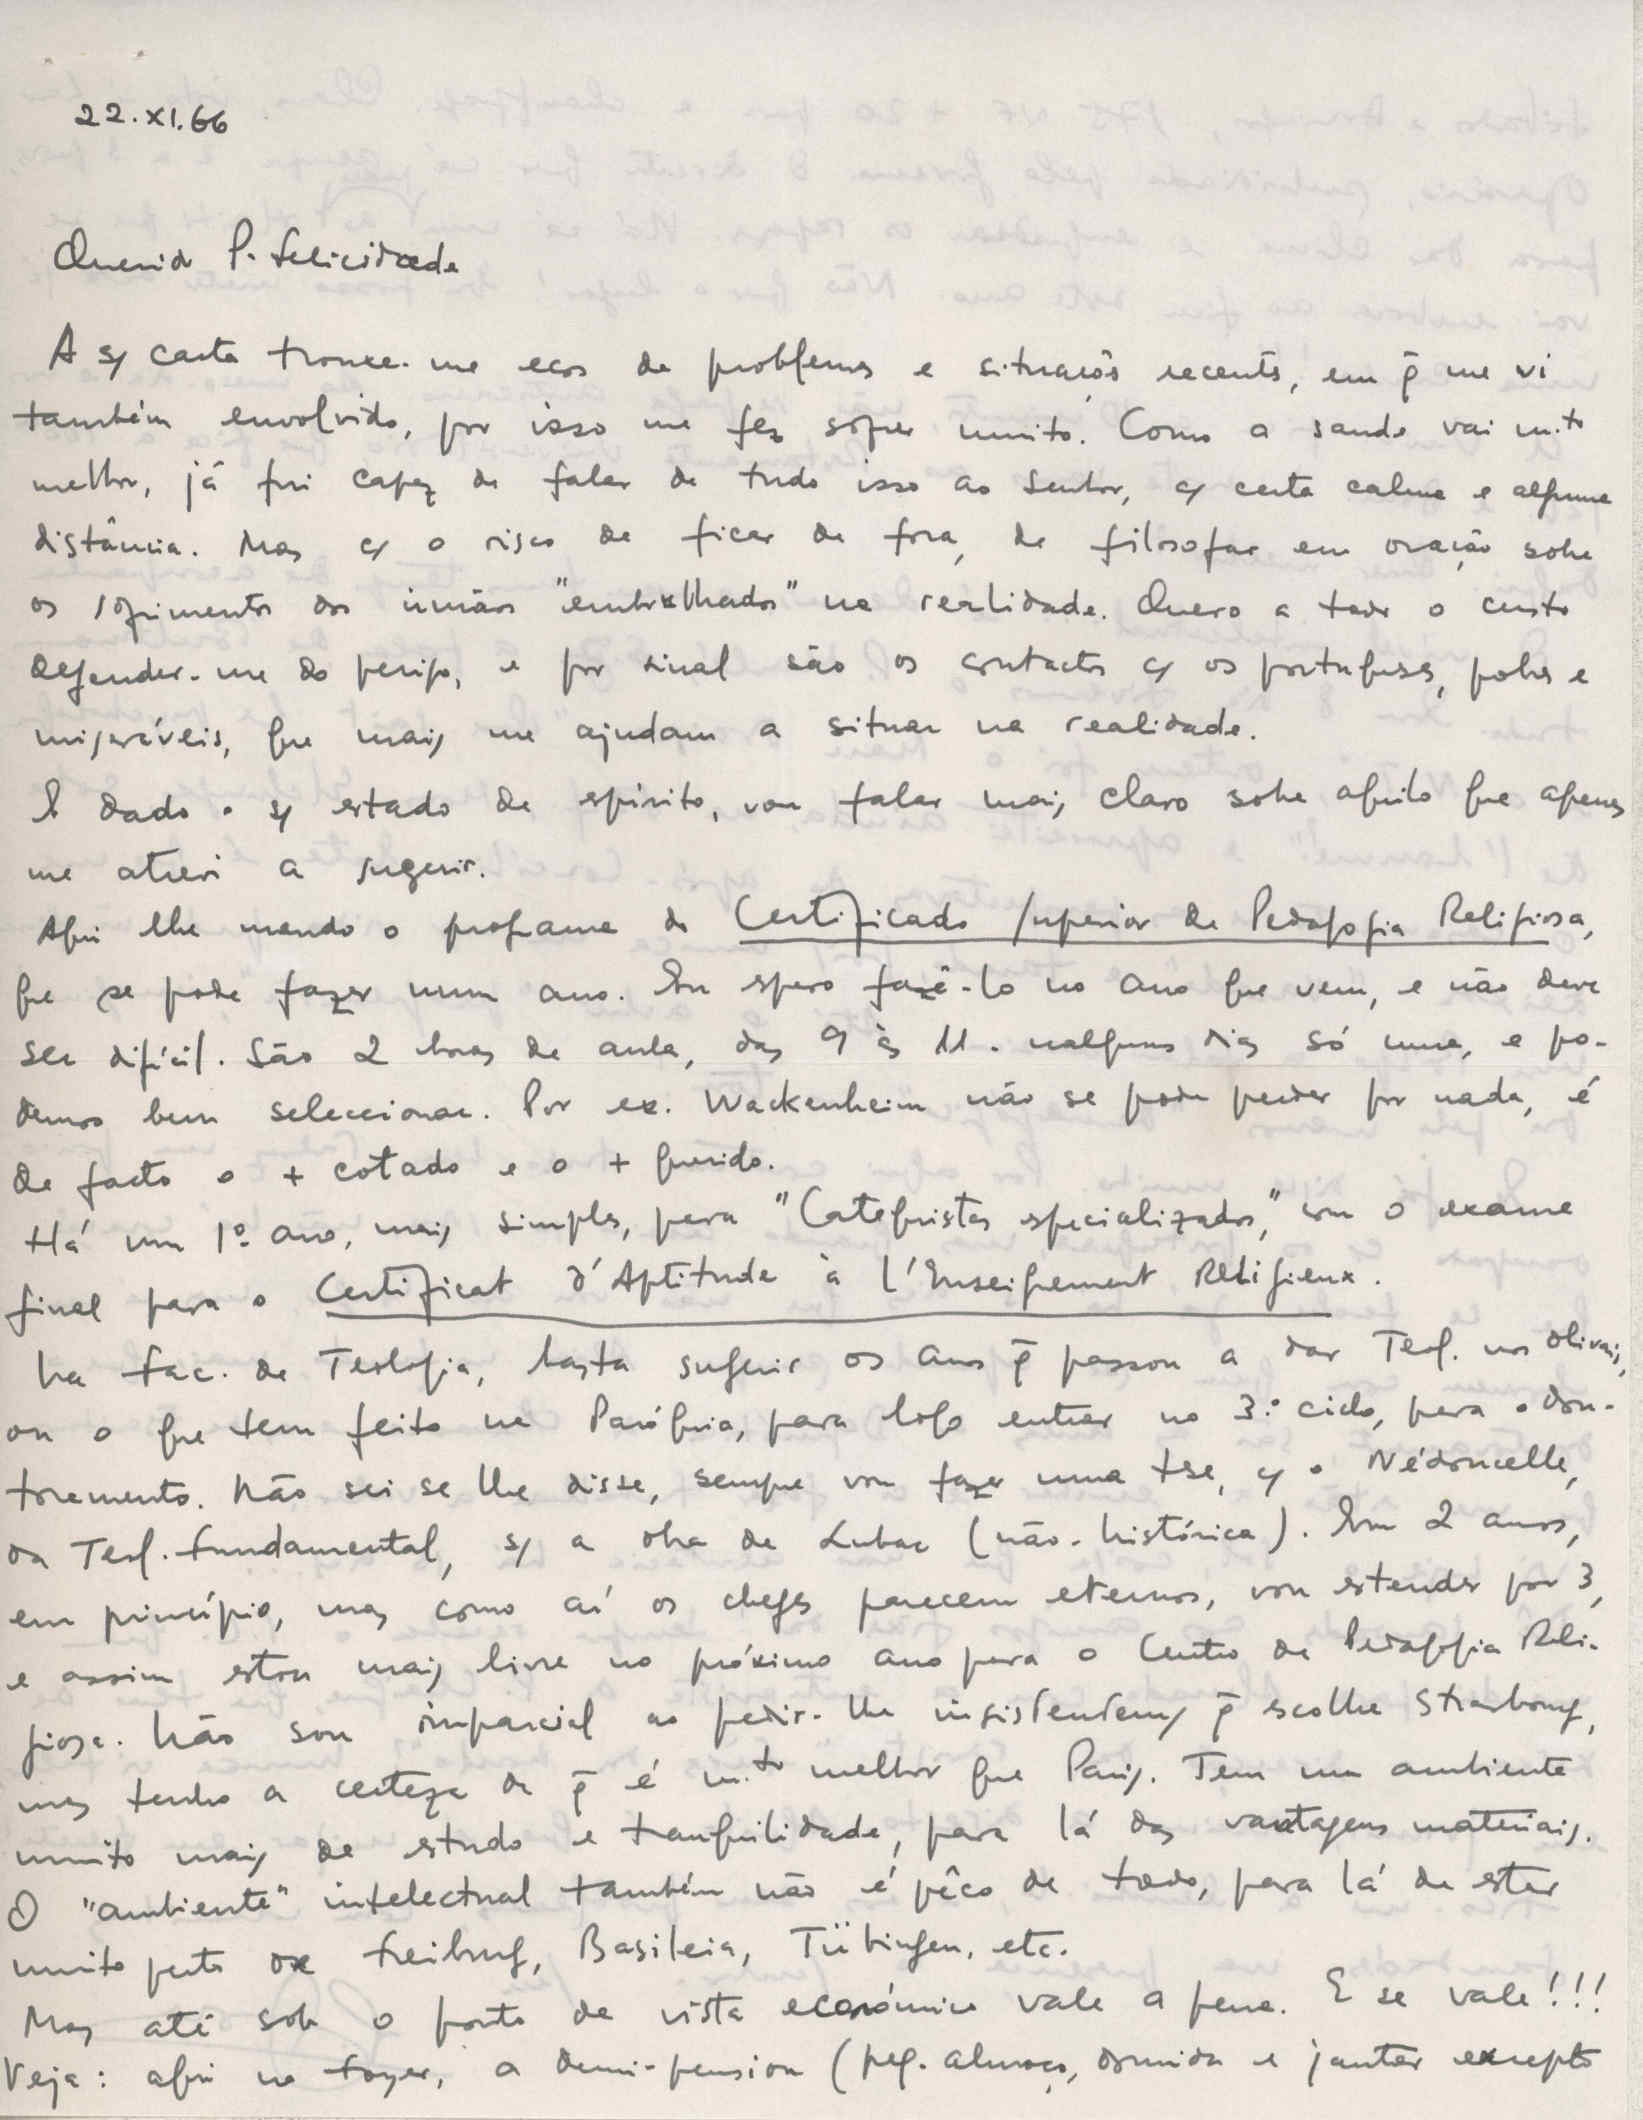 22.XI.66
Querido P. Felicidade
A s/ carta trouxe-me ecos de problemas e situações recentes, em q̄ me vi
também envolvido, por isso me fez sofrer muito. Como a saude vai m.to
melhor, já fui capaz de falar de tudo isso ao Senhor, c/ certa calma e alguma
distância. Mas c/ o risco de ficar de fora, de filosofar em oração sobre
os sofrimentos dos irmãos "embrulhados" na realidade. Quero a todo o custo
defender-me do perigo, e por sinal são os contactos c/ os portugueses, pobres e
miseráveis, que mais me ajudam a situar na realidade.
E dado o s/ estado de espírito, vou falar mais claro sobre aquilo que apenas
me atrevi a sugerir.
Aqui lhe mando o programa do Certificado Superior de Pedagogia Religiosa,
que se pode fazer num ano. Eu espero fazê-lo no ano que vem, e não deve
ser difícil. São 2 horas de aula, das 9 às 11. nalguns dias só uma, e po-
demos bem seleccionar. Por ex. Wackenheim não se pode perder por nada, é
de facto o + cotado e o + querido.
Há um 1º ano, mais simples, para "Catequistas especializados," com o exame
final para o Certificat d'Aptitude à l'Enseignement Religieux.
Na Fac. de Teologia, basta sugerir os anos q̄ passou a dar Teol. nos Olivais,
ou o que tem feito na Paróquia, para logo entrar no 3.º ciclo, para o dou-
toramento. Não sei se lhe disse, sempre vou fazer uma tese, c/ o Nédoncelle,
da Teol. Fundamental, s/ a obra de Lubac (não-histórica). Em 2 anos,
em princípio, mas como aí os chefes parecem eternos, vou estender por 3,
e assim estou mais livre no próximo ano para o Centro de Pedagogia Reli-
giosa. Não sou imparcial ao pedir-lhe insistentem/ q̄ escolha Strasbourg,
mas tenho a certeza de q̄ é m.to melhor que Paris. Tem um ambiente
muito mais de estudo e tranquilidade, para lá das vantagens materiais.
O "ambiente" intelectual também não é pêco de todo, para lá de estar
muito perto de Freiburg, Basileia, Tübingen, etc.
Mas até sob o ponto de vista económico vale a pena. E se vale!!!
Veja: aqui no Foyer, a demi-pension (peq. almoço, dormida e jantar excepto